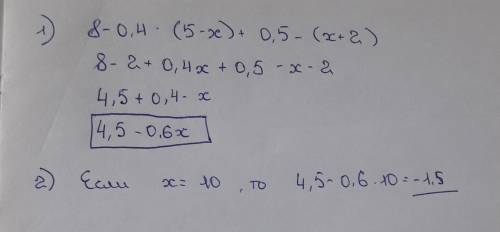 1) 8-0,4 · (5-x)+ 0,5 - (x+2)
8 - 2 + 0,4x + 0,5 - x - 2
4,5 + 0,4 - x
4,5 - 0,6x
2) Если x = 10 , то 4,5 - 0,6 · 10 = -1,5